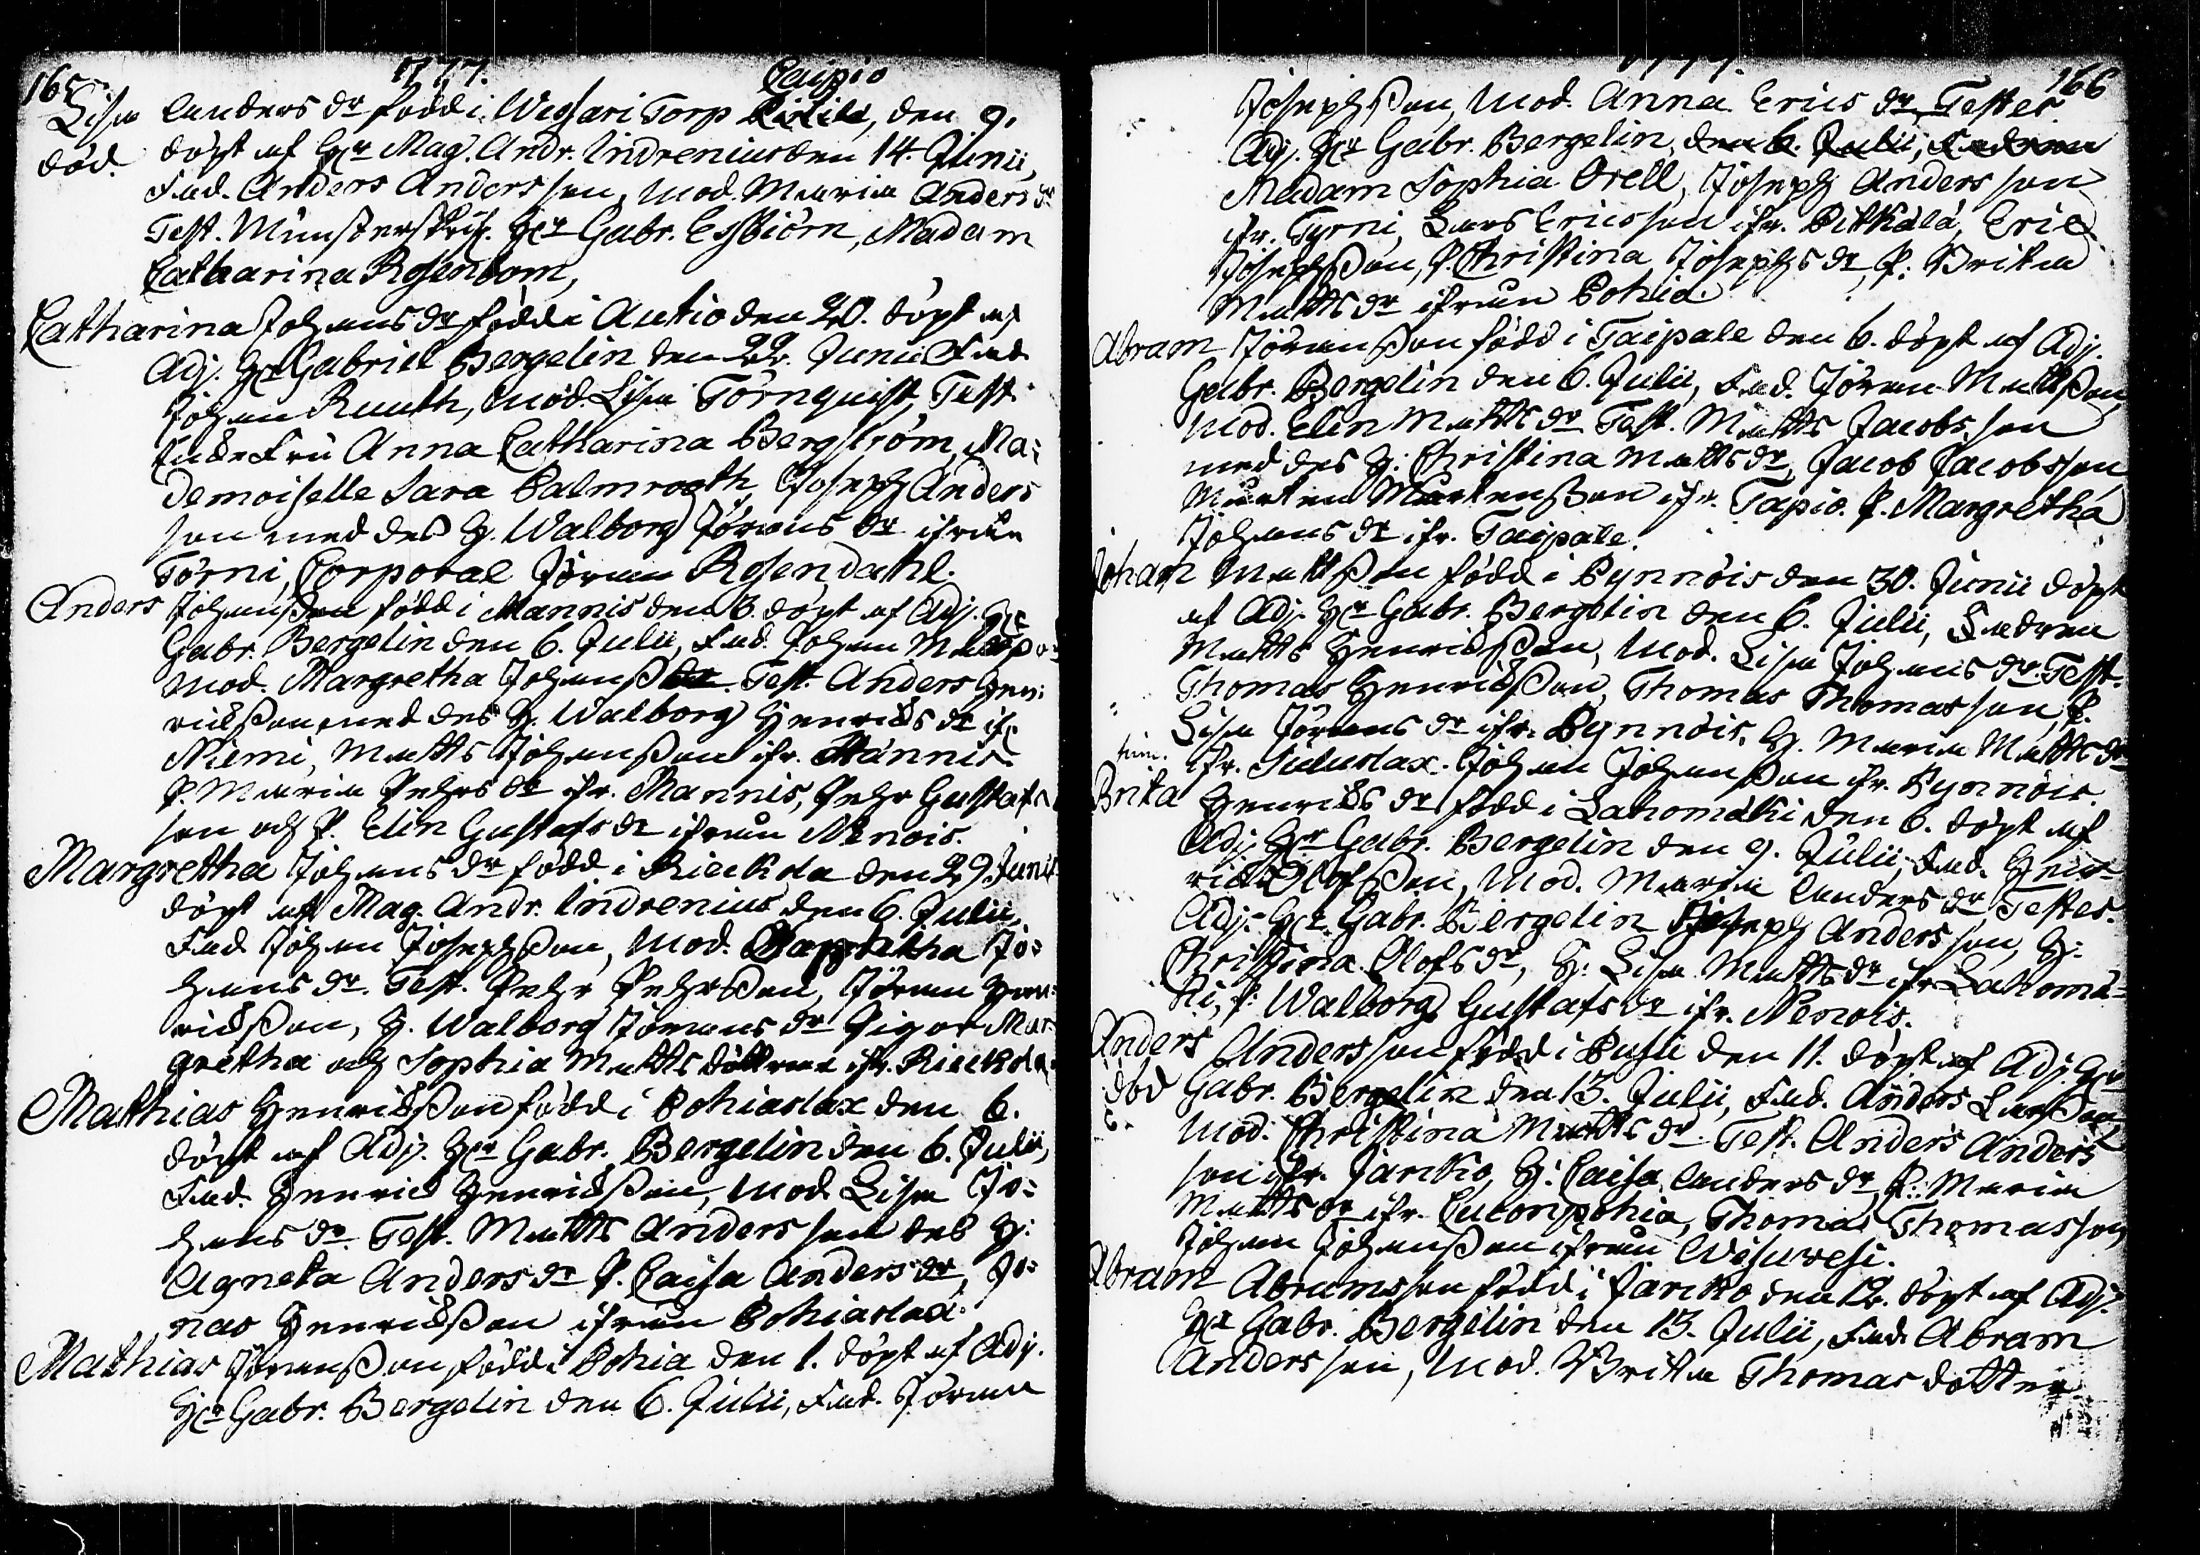 165 1777. Caipio
Lisa Anders dr född i Wessari Torp, den 9.
död. döpt af Hr Mag. Andr. Indrenius den 14. Junii,
Fad. Anders Andersson, Mod. Maria Anders dr
Test. Münsterskrif. Hr Gabr. Essbiörn, Madam
Catharina Rosenbom,
Catharina Johans dr född i Autio den 20. döpt af
Adj. Hr Gabriel Bergelin den 22. Junii Fad.
Johan Ruuth, Mod. Lisa Törnquist, Test.
Enkefru Anna Catharina Bergström, Ma:
demoiselle Sara Palmrooth, Joseph Anders
son med des H. Walborg Jörans dr ifrån
Törni, Corporal Jöran Rosendahl.
Anders Johansson född i Mannis den 3. döpt af Adj. Hr
Gabr. Bergelin den 6. Julii, Fad. Johan
Mod. Margretha Johans dr. Test. Anders Hen:
ricsson med des H. Walborg Henrics dr if.
Niemi, Matts Johansson ifr. Mannis
P. Maria Pehrs dr ifr. Mannis, Pehr Gustafs
son och P. Elin Gustafs dr ifrån Nenois.
Margretha Johans dr född i Rieckola den 29. Junii
döpt af Mag. Andr. Indrenius den 6. Julii,
Fad. Johan Josephsson, Mod. Margretha Jo:
hans dr. Test. Pehr Pehrsson, Jöran Hen:
ricsson, H. Walborg Jörans dr Pigor Mar
gretha och Sophia Matts döttrar ifr. Rieckola
Mathias Henricsson född i Pohiaslax den 6.
döpt af Adj. Hr Gabr. Bergelin den 6. Julii,
Fad. Henric Henricsson, Mod. Lisa Jo:
hans dr. Test. Matts Andersson des H:
Agneta Anders dr P. Caisa Anders dr, Jo:
nas Henricsson ifrån Pohiaslax.
Mathias Jöransson född i Pohia den 1. döpt af Adj.
Hr Gabr. Bergelin den 6. Julii, Fad. Jöran
166
Josephsson, Mod. Anna Erics dr Testes
Adj. Hr Gabr. Bergelin, den 6. Julii, Fadren
Madam Sophia Orell, Joseph Andersson
ifr. Tyrni, Lars Ericsson ifr. Pitkälä, Eric
Josephsson, P. Christina Josephs dr, P: Brita
Matts dr ifrån Pohia.
Abram Jöransson född i Taipale den 6. döpt af Adj.
Gabr. Bergelin den 6. Julii, Fad. Jöran Mattsson
Mod. Elin Matts dr Test. Matts Jacobsson
med des H: Christina Matts dr, Jacob Jacobsson
Marten Martensson ifr. Tapio. P. Margretha
Johans dr ifr. Taipale.
Johan Mattsson född i Pynnöis den 30. Junii döpt
af Adj. Hr Gabr. Bergelin den 6. Julii, Fadren
Matts Henricsson, Mod. Lisa Johans dr. Test.
Thomas Henricsson, Thomas Thomasson, P.
Lisa Jörans dr ifr. Pynnöis, H. Maria Matts dr
ifr. Suluslax. Johan Johansson ifr. Pynnöis.
Brita Henrics dr född i Lahomäki den 6. döpt af
Adj. Hr Gabr. Bergelin den 9. Julii, Fad. Hen
ric Olofsson, Mod. Maria Anders dr, Testes.
Adj. Hr Gabr. Bergelin Joseph Andersson, H:
Christina Olofs dr, H: Lisa Matts dr ifr Lahomä=
ki, P: Walborg Gustafs dr ifr. Nenois.
Anders Andersson född i Pusu den 11. döpt af Adj. Hr
död Gabr. Bergelin den 13. Julii, Fad. Anders Larsson,
Mod. Christina Matts dr Test. Anders Anders
son ifr. Jaricko, H: Caisa Anders dr, P: Maria
Matts dr ifr. Cuconpohia, Thomas Thomasson
Johan Johansson ifrån Wesuvesi.
Abram Abramsson född i Jaricko den 12. döpt af Adj.
Hr Gabr. Bergelin den 13. Julii, Fad. Abram
Andersson, Mod. Brita Thomas dotter